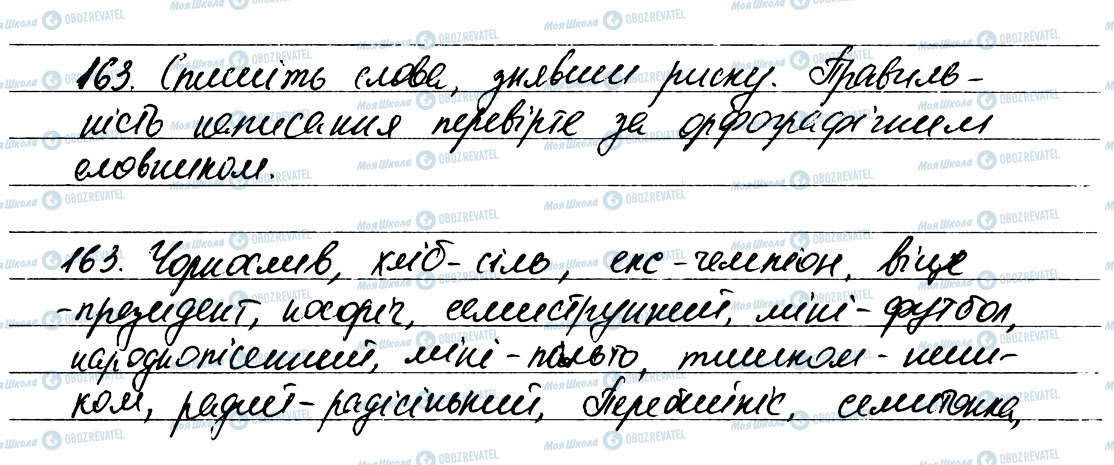 163. Спишіть слова, знявши риску. Правиль-
ність написання перевірте за орфографічним
словником.
163. Чорнослив, хліб-сіль, екс-чемпіон, віце
-президент, носоріг, семиструнний, міні-футбол,
народнопісенний, міні-пальто, тишком-ниш-
ком, радий-радісінький, Перебийніс, семитонка,